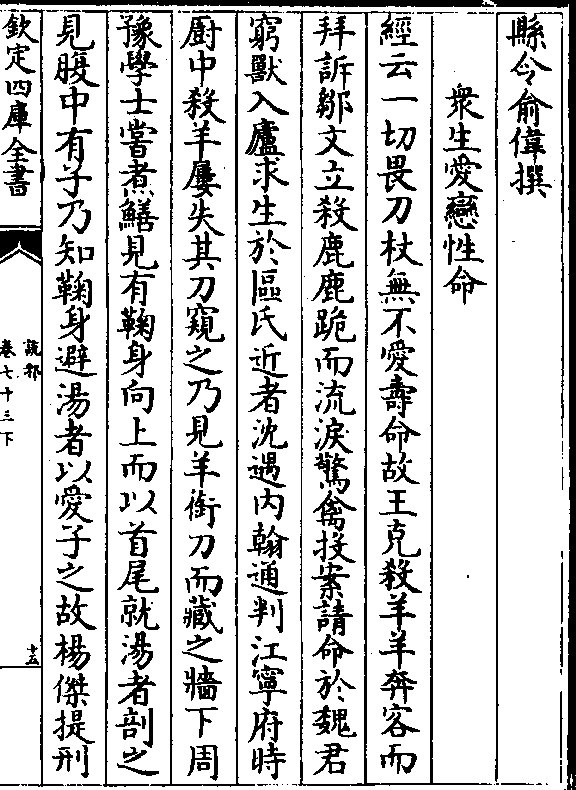 縣令俞偉撰
衆生愛戀性命
經云一切畏刀杖無不愛壽命故王克殺羊羊奔客而
拜訴鄒文立殺鹿鹿跪而流淚驚禽投案請命於魏君
窮獸入廬求生於區氏近者沈遘内翰通判江寧府時
廚中殺羊屢失其刀窺之乃見羊銜刀而藏之牆下周
豫學士嘗煮鱔見有鞠身向上而以首尾就湯者剖之
見腹中有子乃知鞠身避湯者以愛子之故楊傑提刑
欽定四庫全書
說郛
卷七十三下
十五